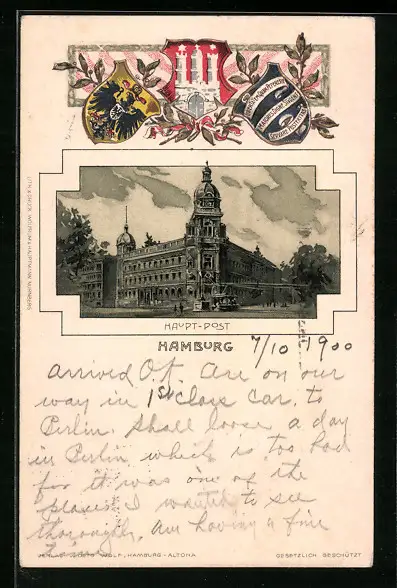 HAUPT-POST
HAMBURG
7/10 1900
arrived O.K. are on our
way in 1st class car, to
Berlin. Shall loose a day
in Berlin which is too bad
for it was one of the
places I wanted to see
thoroughly. Am having a fine
time
WOLF, HAMBURG-ALTONA
GESETZLICH GESCHÜTZT